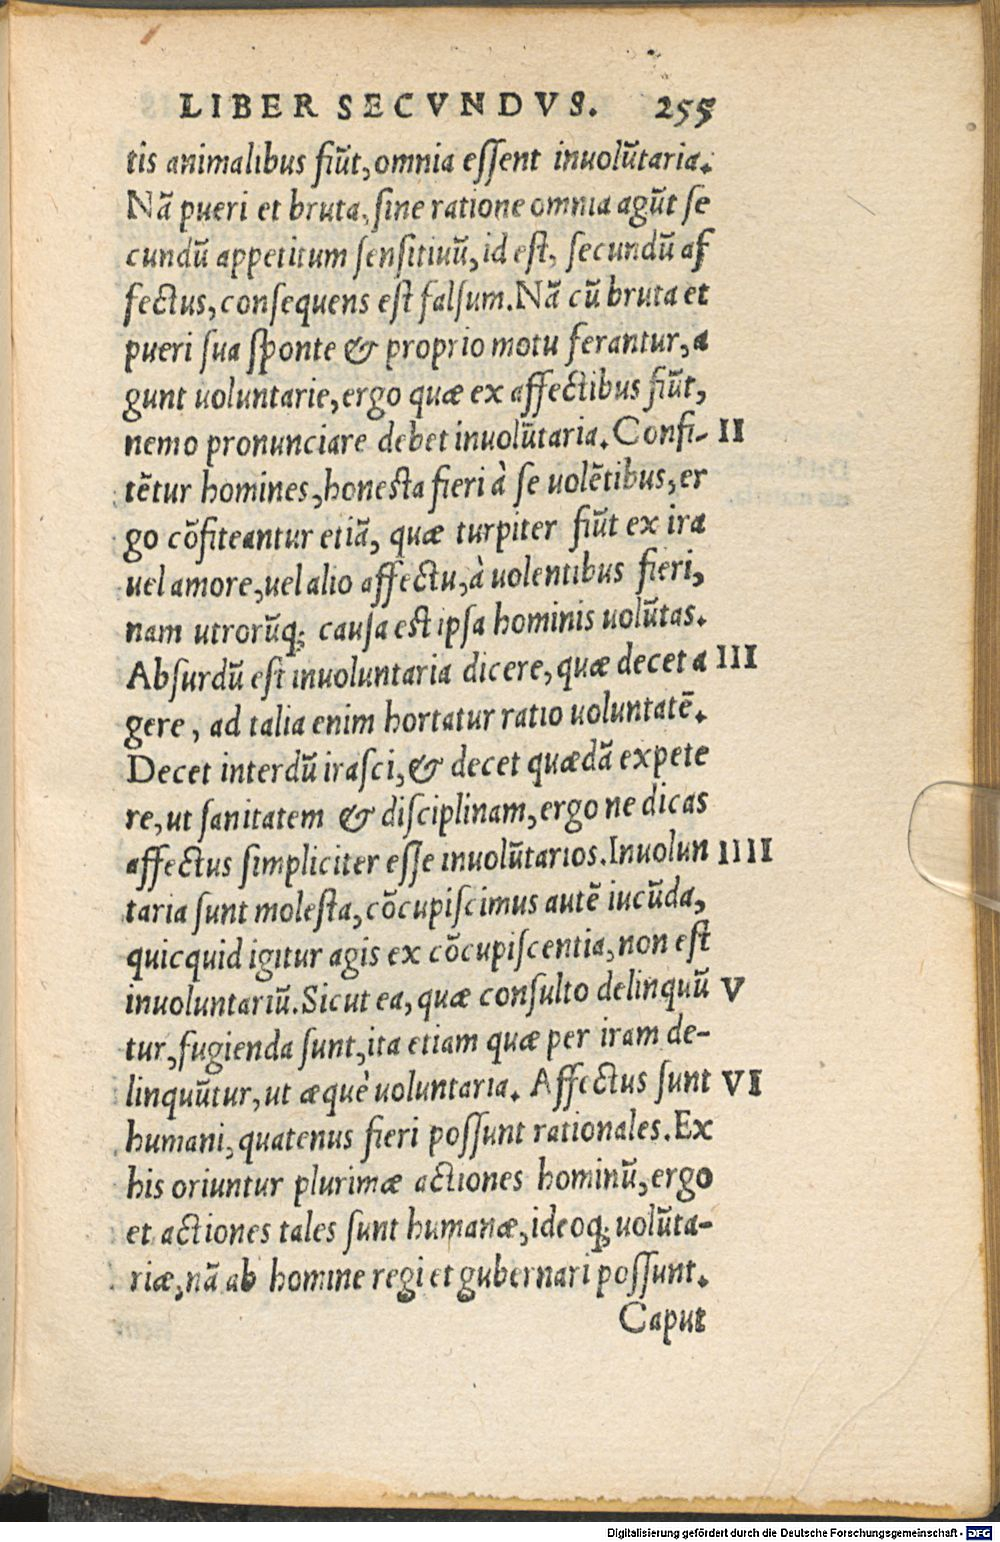 LIBER SECVNDVS. 255
tis animalibus fiūt, omnia eſſent inuolūtaria.
Nā pueri et bruta, ſine ratione omnia agūt ſe
cundū appetitum ſenſitiuū, id eſt, ſecundū af
fectus, conſequens eſt falſum. Nā cū bruta et
pueri ſua ſponte & proprio motu ferantur, a
gunt uoluntarie, ergo quæ ex affectibus fiūt,
nemo pronunciare debet inuolūtaria. Confi- II
tētur homines, honeſta fieri à ſe uolētibus, er
go cōfiteantur etiā, quæ turpiter fiūt ex ira
uel amore, uel alio affectu, à uolentibus fieri,
nam utrorūq; cauſa eſt ipſa hominis uolūtas.
Abſurdū eſt inuoluntaria dicere, quæ decet a III
gere, ad talia enim hortatur ratio uoluntatē.
Decet interdū iraſci, & decet quædā expete
re, ut ſanitatem & diſciplinam, ergo ne dicas
affectus ſimpliciter eſſe inuolūtarios. Inuolun IIII
taria ſunt moleſta, cōcupiſcimus autē iucūda,
quicquid igitur agis ex cōcupiſcentia, non eſt
inuoluntariū. Sicut ea, quæ conſulto delinquū V
tur, fugienda ſunt, ita etiam quæ per iram de-
linquūtur, ut æquè uoluntaria. Affectus ſunt VI
humani, quatenus fieri poſſunt rationales. Ex
his oriuntur plurimæ actiones hominū, ergo
et actiones tales ſunt humanæ, ideoq; uolūta-
riæ, nā ab homine regi et gubernari poſſunt.
Caput
Digitalisierung gefördert durch die Deutsche Forschungsgemeinschaft - DFG